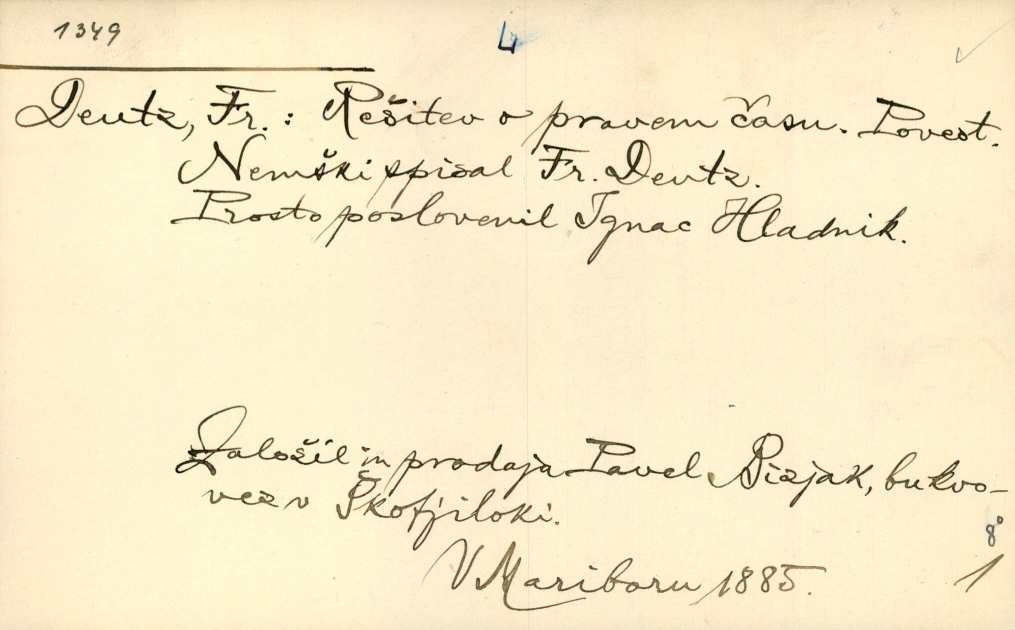 1349
L
Deutz, Fr.: Rešitev o pravem času. Povest.
Nemški spisal Fr. Deutz.
Prosto poslovenil Ignac Hladnik.
Založil in prodaja Pavel Bizjak, bukvo-
vez v Škofjiloki.
8°
V Mariboru 1885.
1